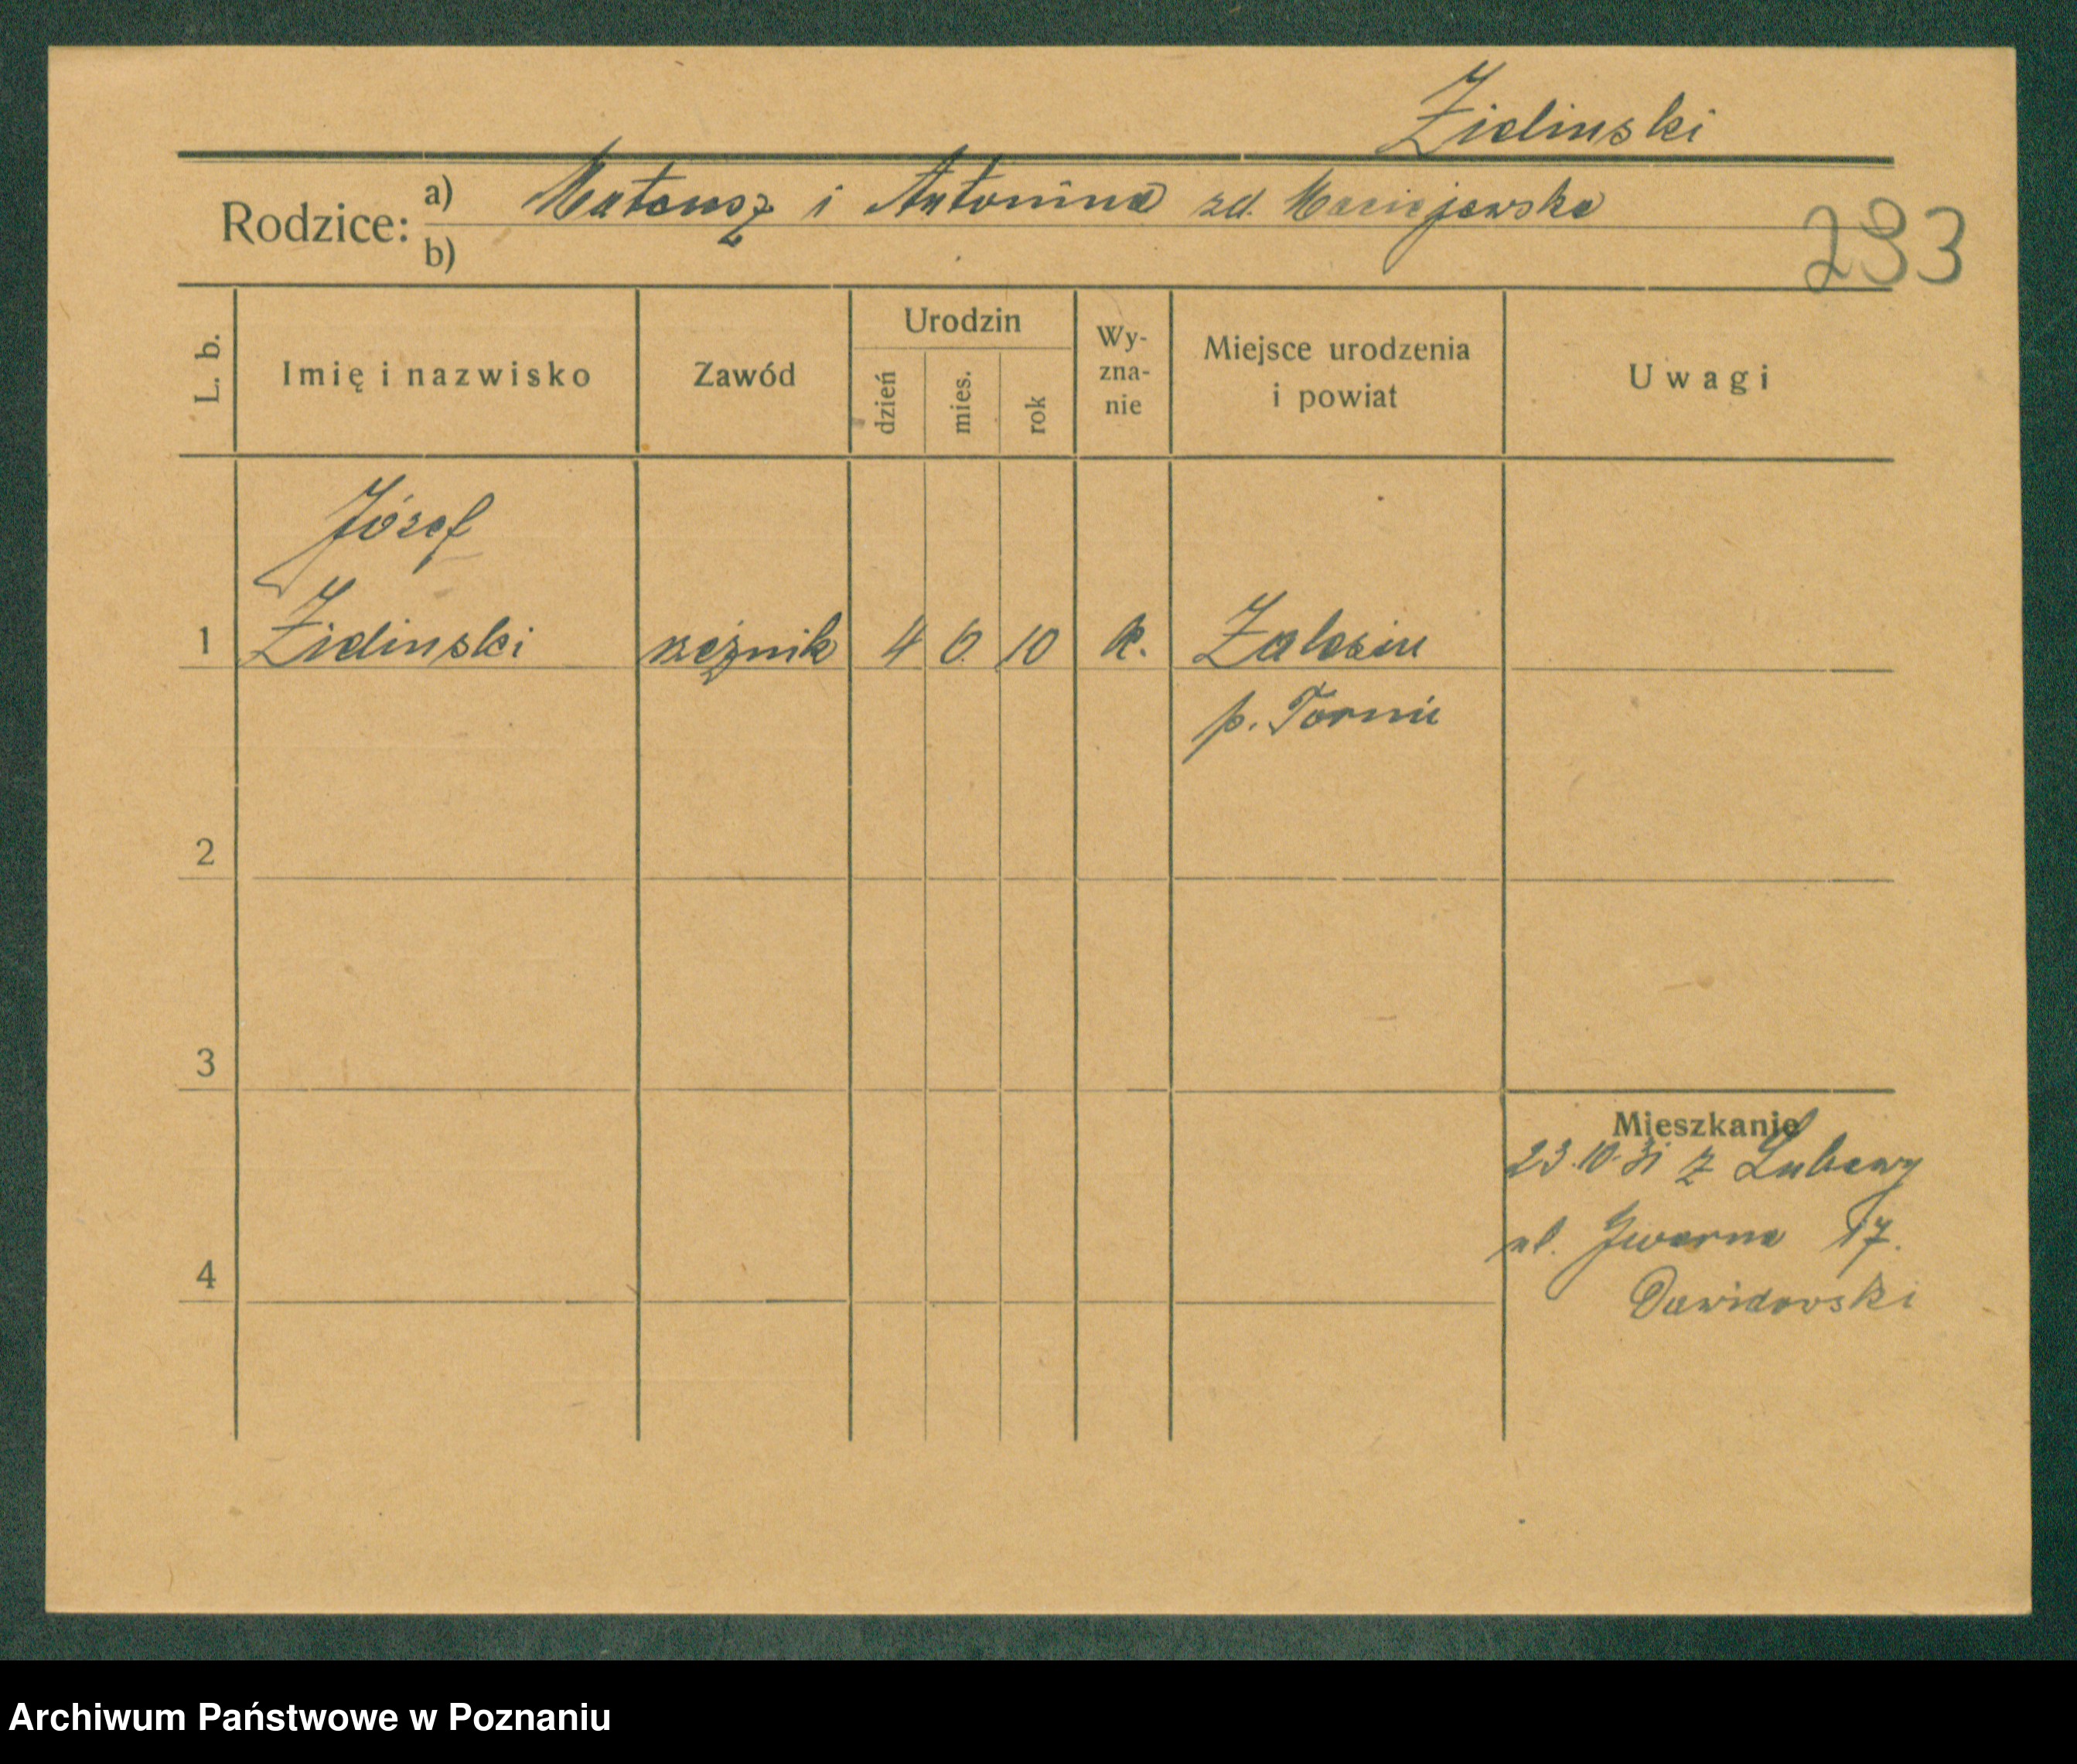 Zielinski
Rodzice: a) Mateusz i Antonina zd. Maciejewska
b)
293
L. b. Imię i nazwisko Zawód Urodzin dzień mies. rok Wy-zna-nie Miejsce urodzenia i powiat Uwagi
Józef
1 Zielinski rzeźnik 4 6. 10 k. Zalesiu
p. Toruń
2
3
Mieszkanie
23.10.31 z Lubawy
ul. Gwarna 17.
4
Dawidowski
Archiwum Państwowe w Poznaniu